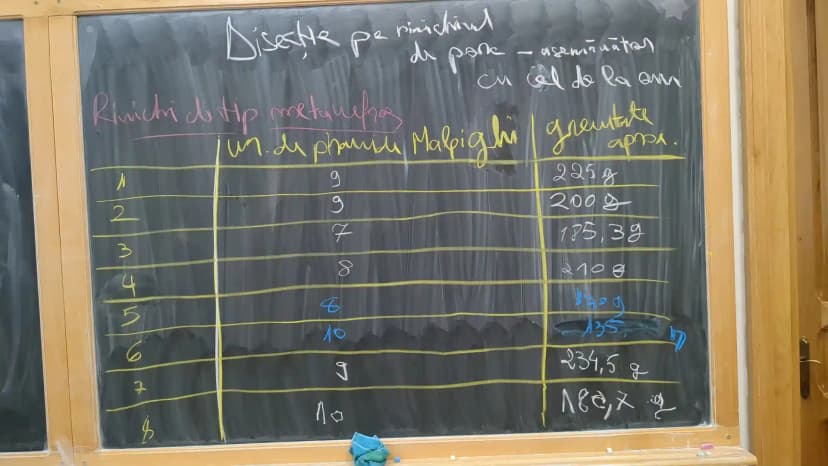 Disecție pe rinichiul
de porc - asemănător
cu cel de la om
Rinichi de tip metanefros
nr. de piramide Malpighi greutate
aprox.
1 9 225 g
2 9 200 g
3 7 185,3 g
4 8 210 g
5 8
6 10 135
7 9 234,5 g
8 10 g